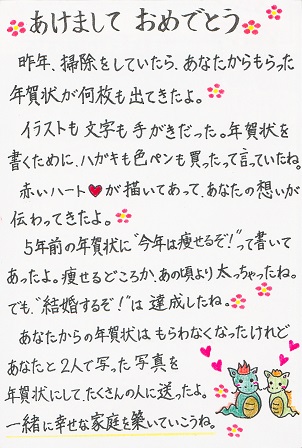 あけまして おめでとう
昨年、掃除をしていたら、あなたからもらった
年賀状が何枚も出てきたよ。
イラストも文字も手がきだった。年賀状を
書くために、ハガキも色ペンも買ったって言っていたね。
赤いハート♥が描いてあって、あなたの想いが
伝わってきたよ。
5年前の年賀状に"今年は痩せるぞ!"って書いて
あったよ。痩せるどころか、あの頃より太っちゃったね。
でも、"結婚するぞ!"は達成したね。
あなたからの年賀状はもらわなくなったけれど
あなたと2人で写った写真を
年賀状にして、たくさんの人に送ったよ。
一緒に幸せな家庭を築いていこうね。